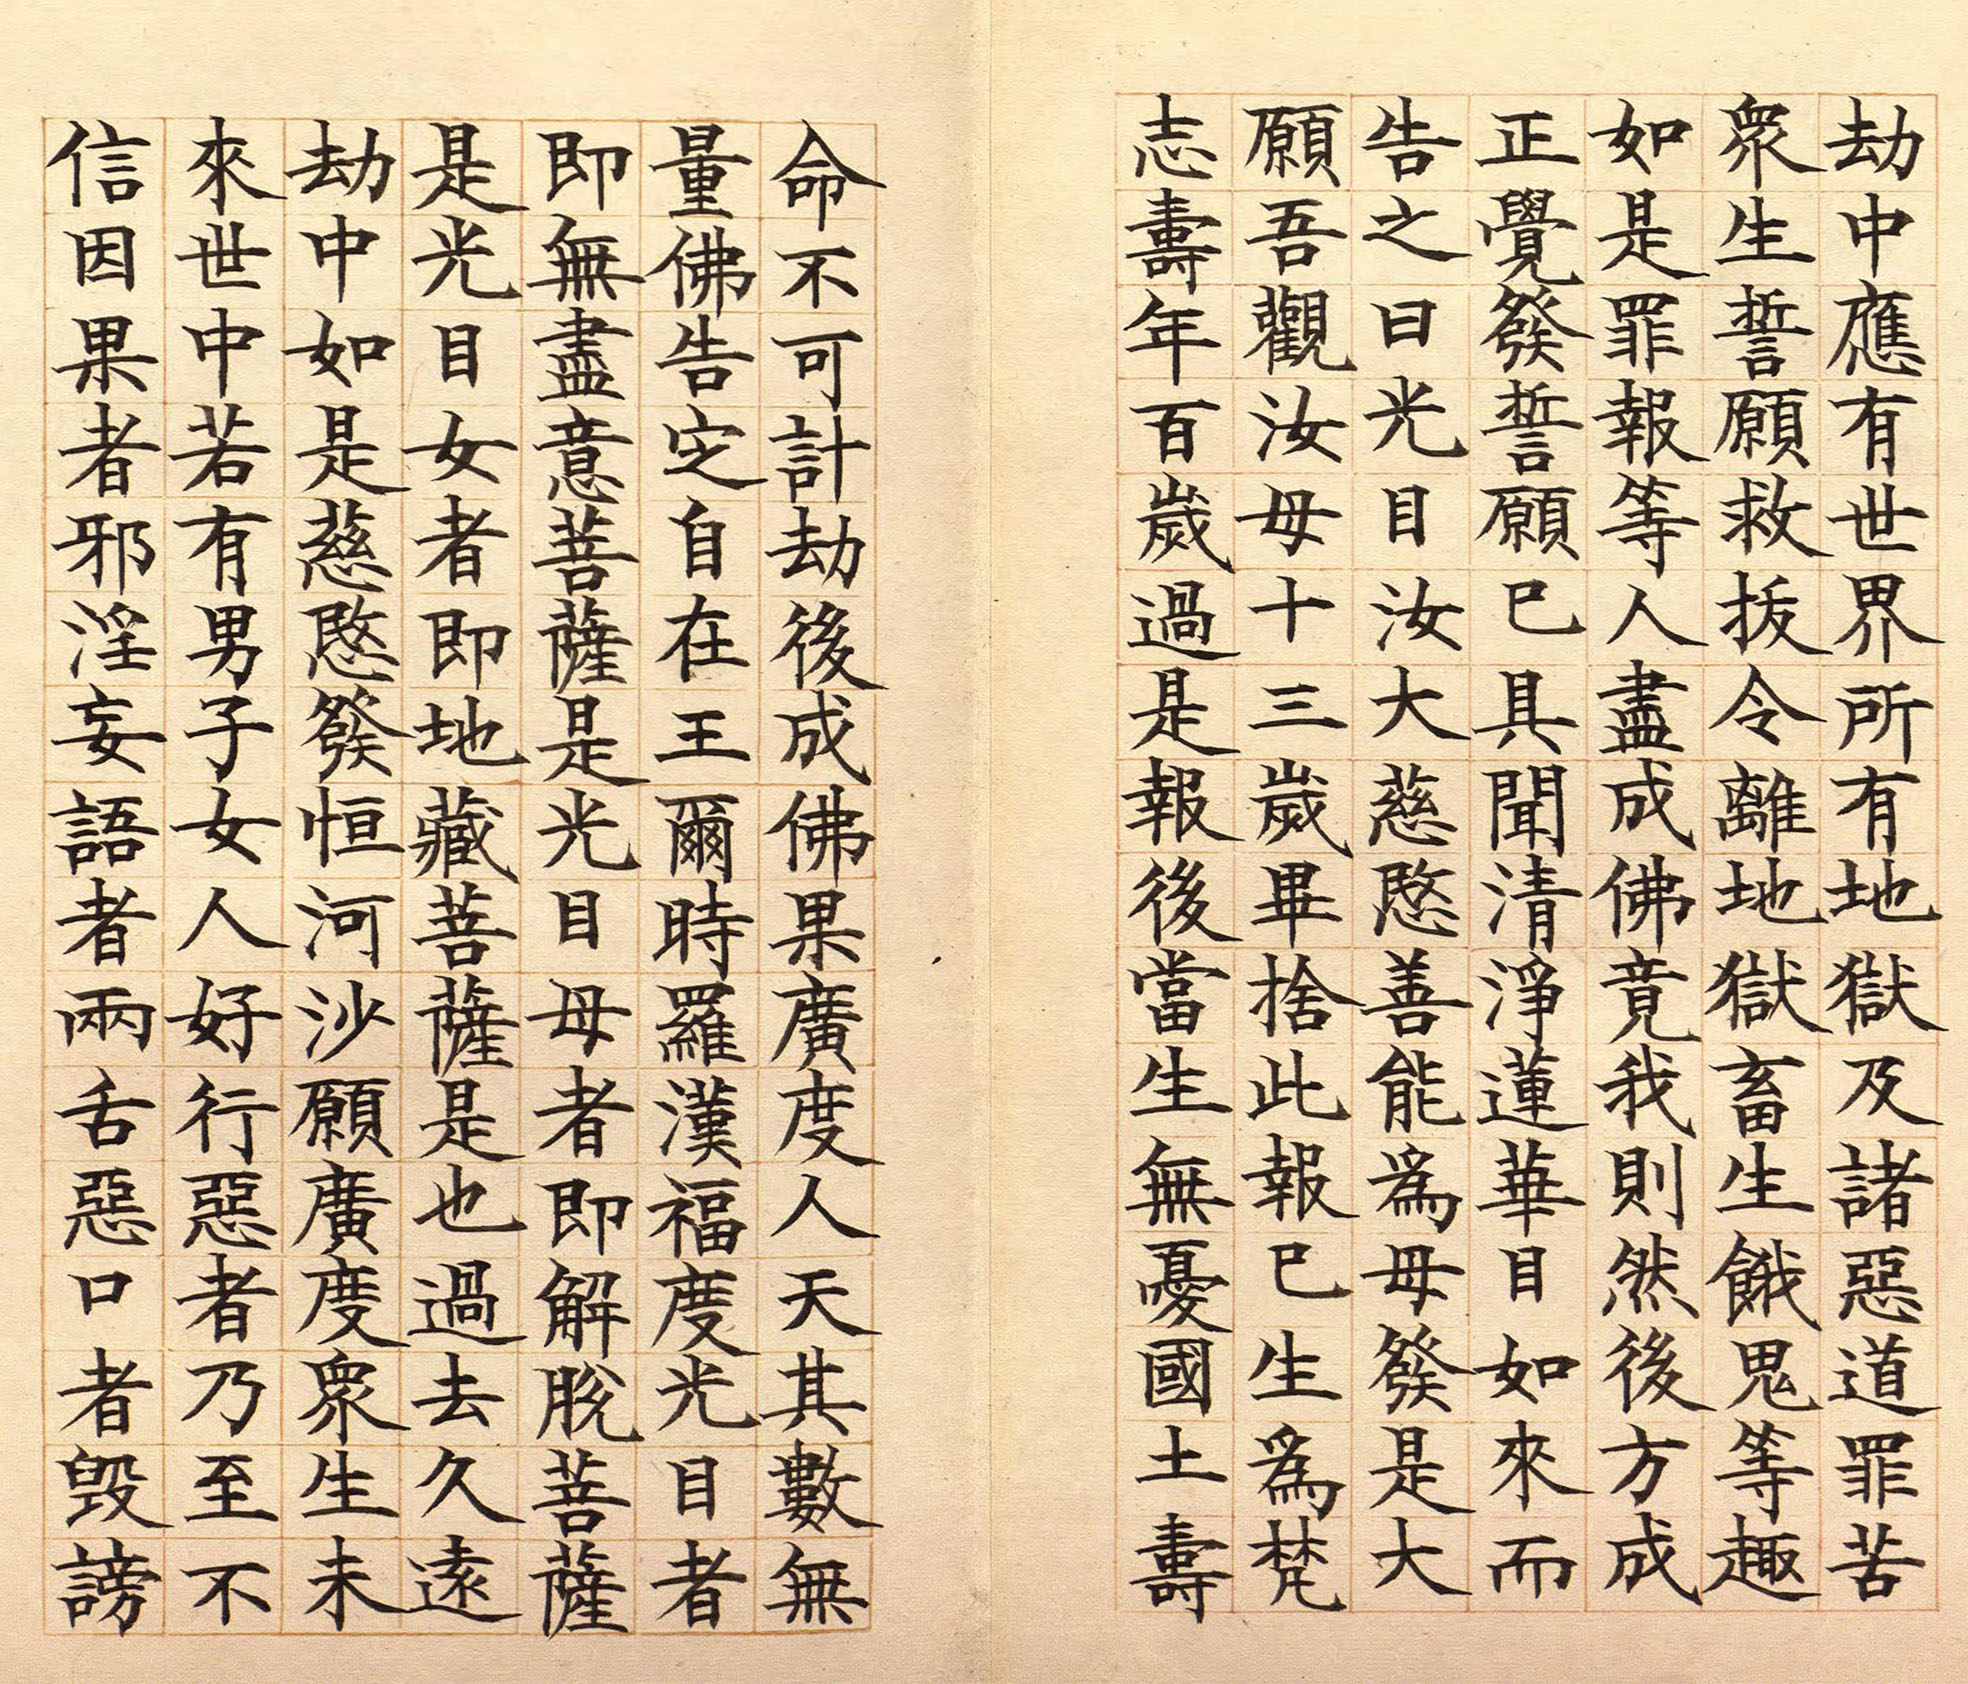 劫中應有世界所有地獄及諸惡道罪苦
眾生誓願救拔令離地獄畜生餓鬼等趣
如是罪報等人盡成佛竟我則然後方成
正覺發誓願已具聞清淨蓮華目如來而
告之曰光目汝大慈愍善能為母發是大
願吾觀汝母十三歲畢捨此報已生為梵
志壽年百歲過是報後當生無憂國土壽
命不可計劫後成佛果廣度人天其數無
量佛告定自在王爾時羅漢福度光目者
即無盡意菩薩是光目母者即解脫菩薩
是光目女者即地藏菩薩是也過去久遠
劫中如是慈愍發恒河沙願廣度眾生未
來世中若有男子女人好行惡者乃至不
信因果者邪淫妄語者兩舌惡口者毀謗